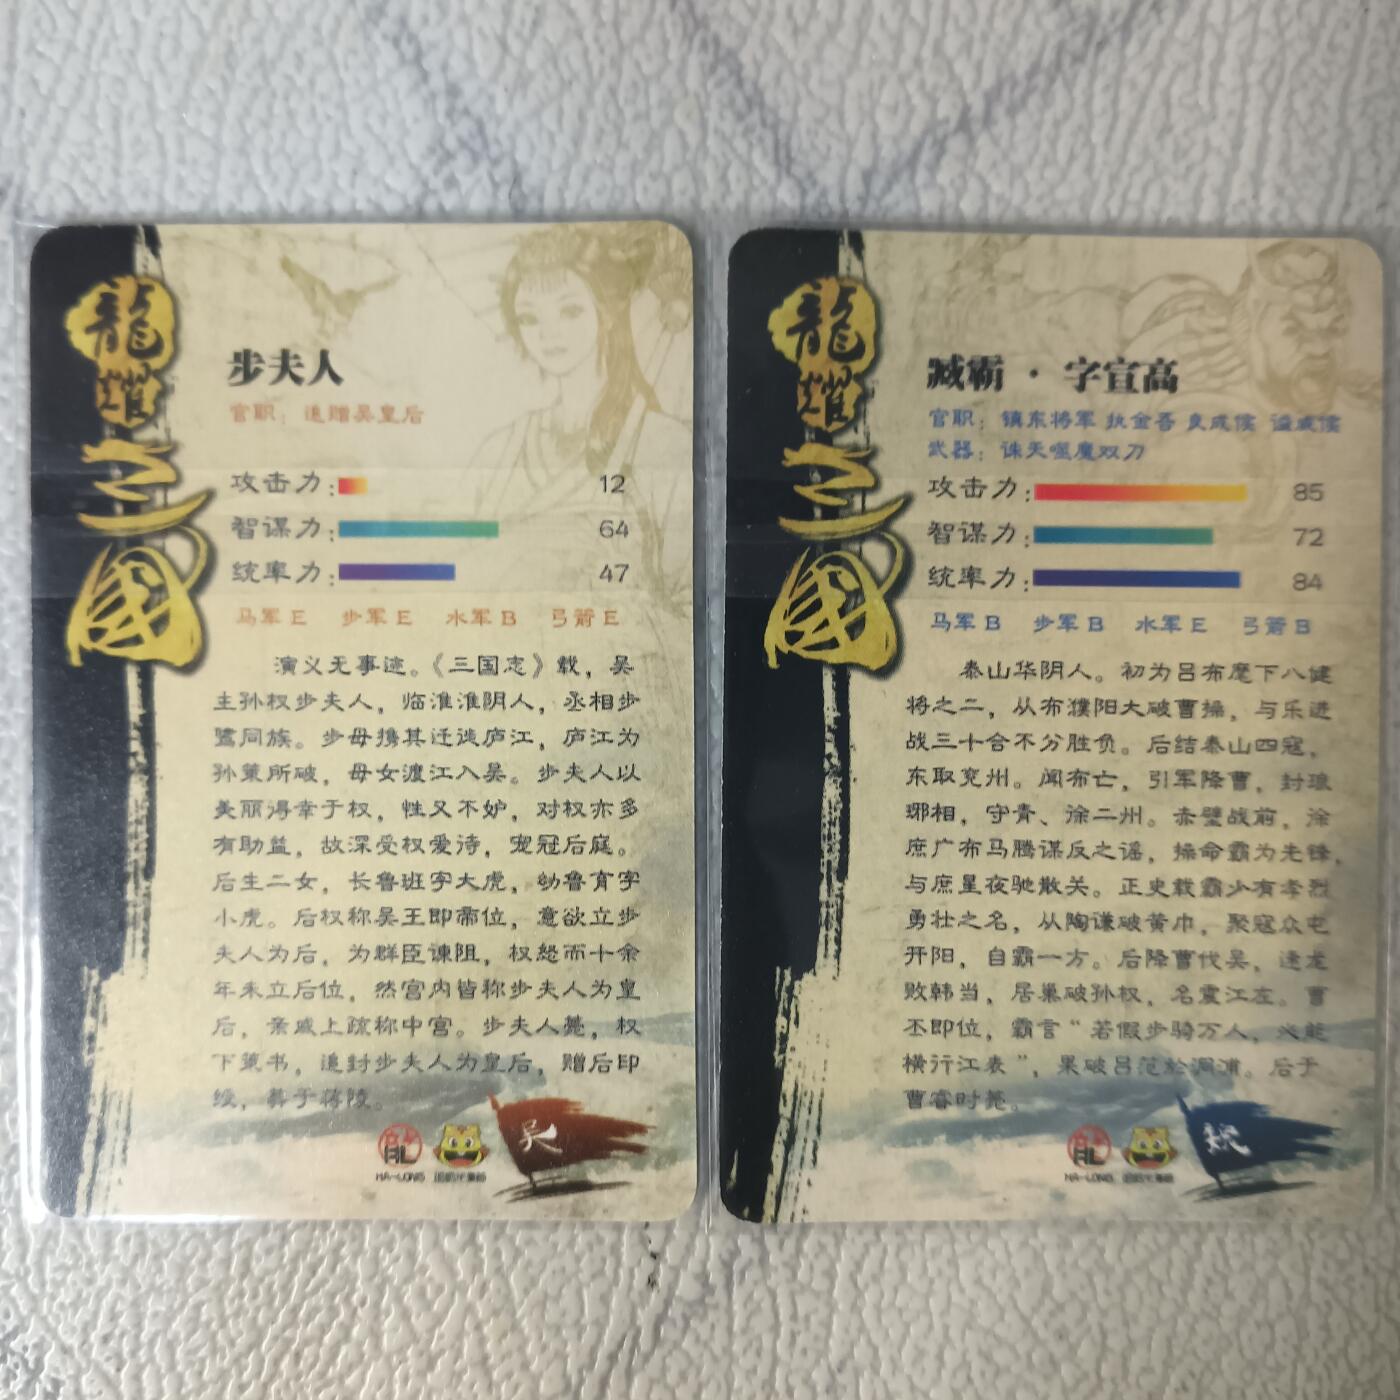 龍耀三國
步夫人
官职：追赠吴皇后
攻击力：12
智谋力：64
统率力：47
马军E 步军E 水军B 弓箭E
演义无事迹。《三国志》载，吴
主孙权步夫人，临淮淮阴人，丞相步
骘同族。步母携其迁徙庐江，庐江为
孙策所破，母女渡江入吴。步夫人以
美丽得幸于权，性又不妒，对权亦多
有助益，故深受权爱待，宠冠后庭。
后生二女，长鲁班字大虎，幼鲁育字
小虎。后权称吴王即帝位，意欲立步
夫人为后，为群臣谏阻，权怒而十余
年未立后位，然宫内皆称步夫人为皇
后，亲戚上疏称中宫。步夫人薨，权
下策书，追封步夫人为皇后，赠后印
绶，葬于蒋陵。
HA-LONG
吴
龍耀三國
臧霸·字宣高
官职：镇东将军 执金吾 良成侯 谥威侯
武器：诛天噬魔双刀
攻击力：85
智谋力：72
统率力：84
马军B 步军B 水军E 弓箭B
泰山华阴人。初为吕布麾下八健
将之二，从布濮阳大破曹操，与乐进
战三十合不分胜负。后结泰山四寇，
东取兖州。闻布亡，引军降曹，封琅
琊相，守青、徐二州。赤壁战前，徐
庶广布马腾谋反之谣，操命霸为先锋，
与庶星夜驰散关。正史载霸少有孝烈
勇壮之名，从陶谦破黄巾，聚寇众屯
开阳，自霸一方。后降曹代吴，逢龙
败韩当，居巢破孙权，名震江左。曹
丕即位，霸言“若假步骑万人，必能
横行江表”，果破吕范於洞浦。后于
曹睿时薨。
HA-LONG
魏